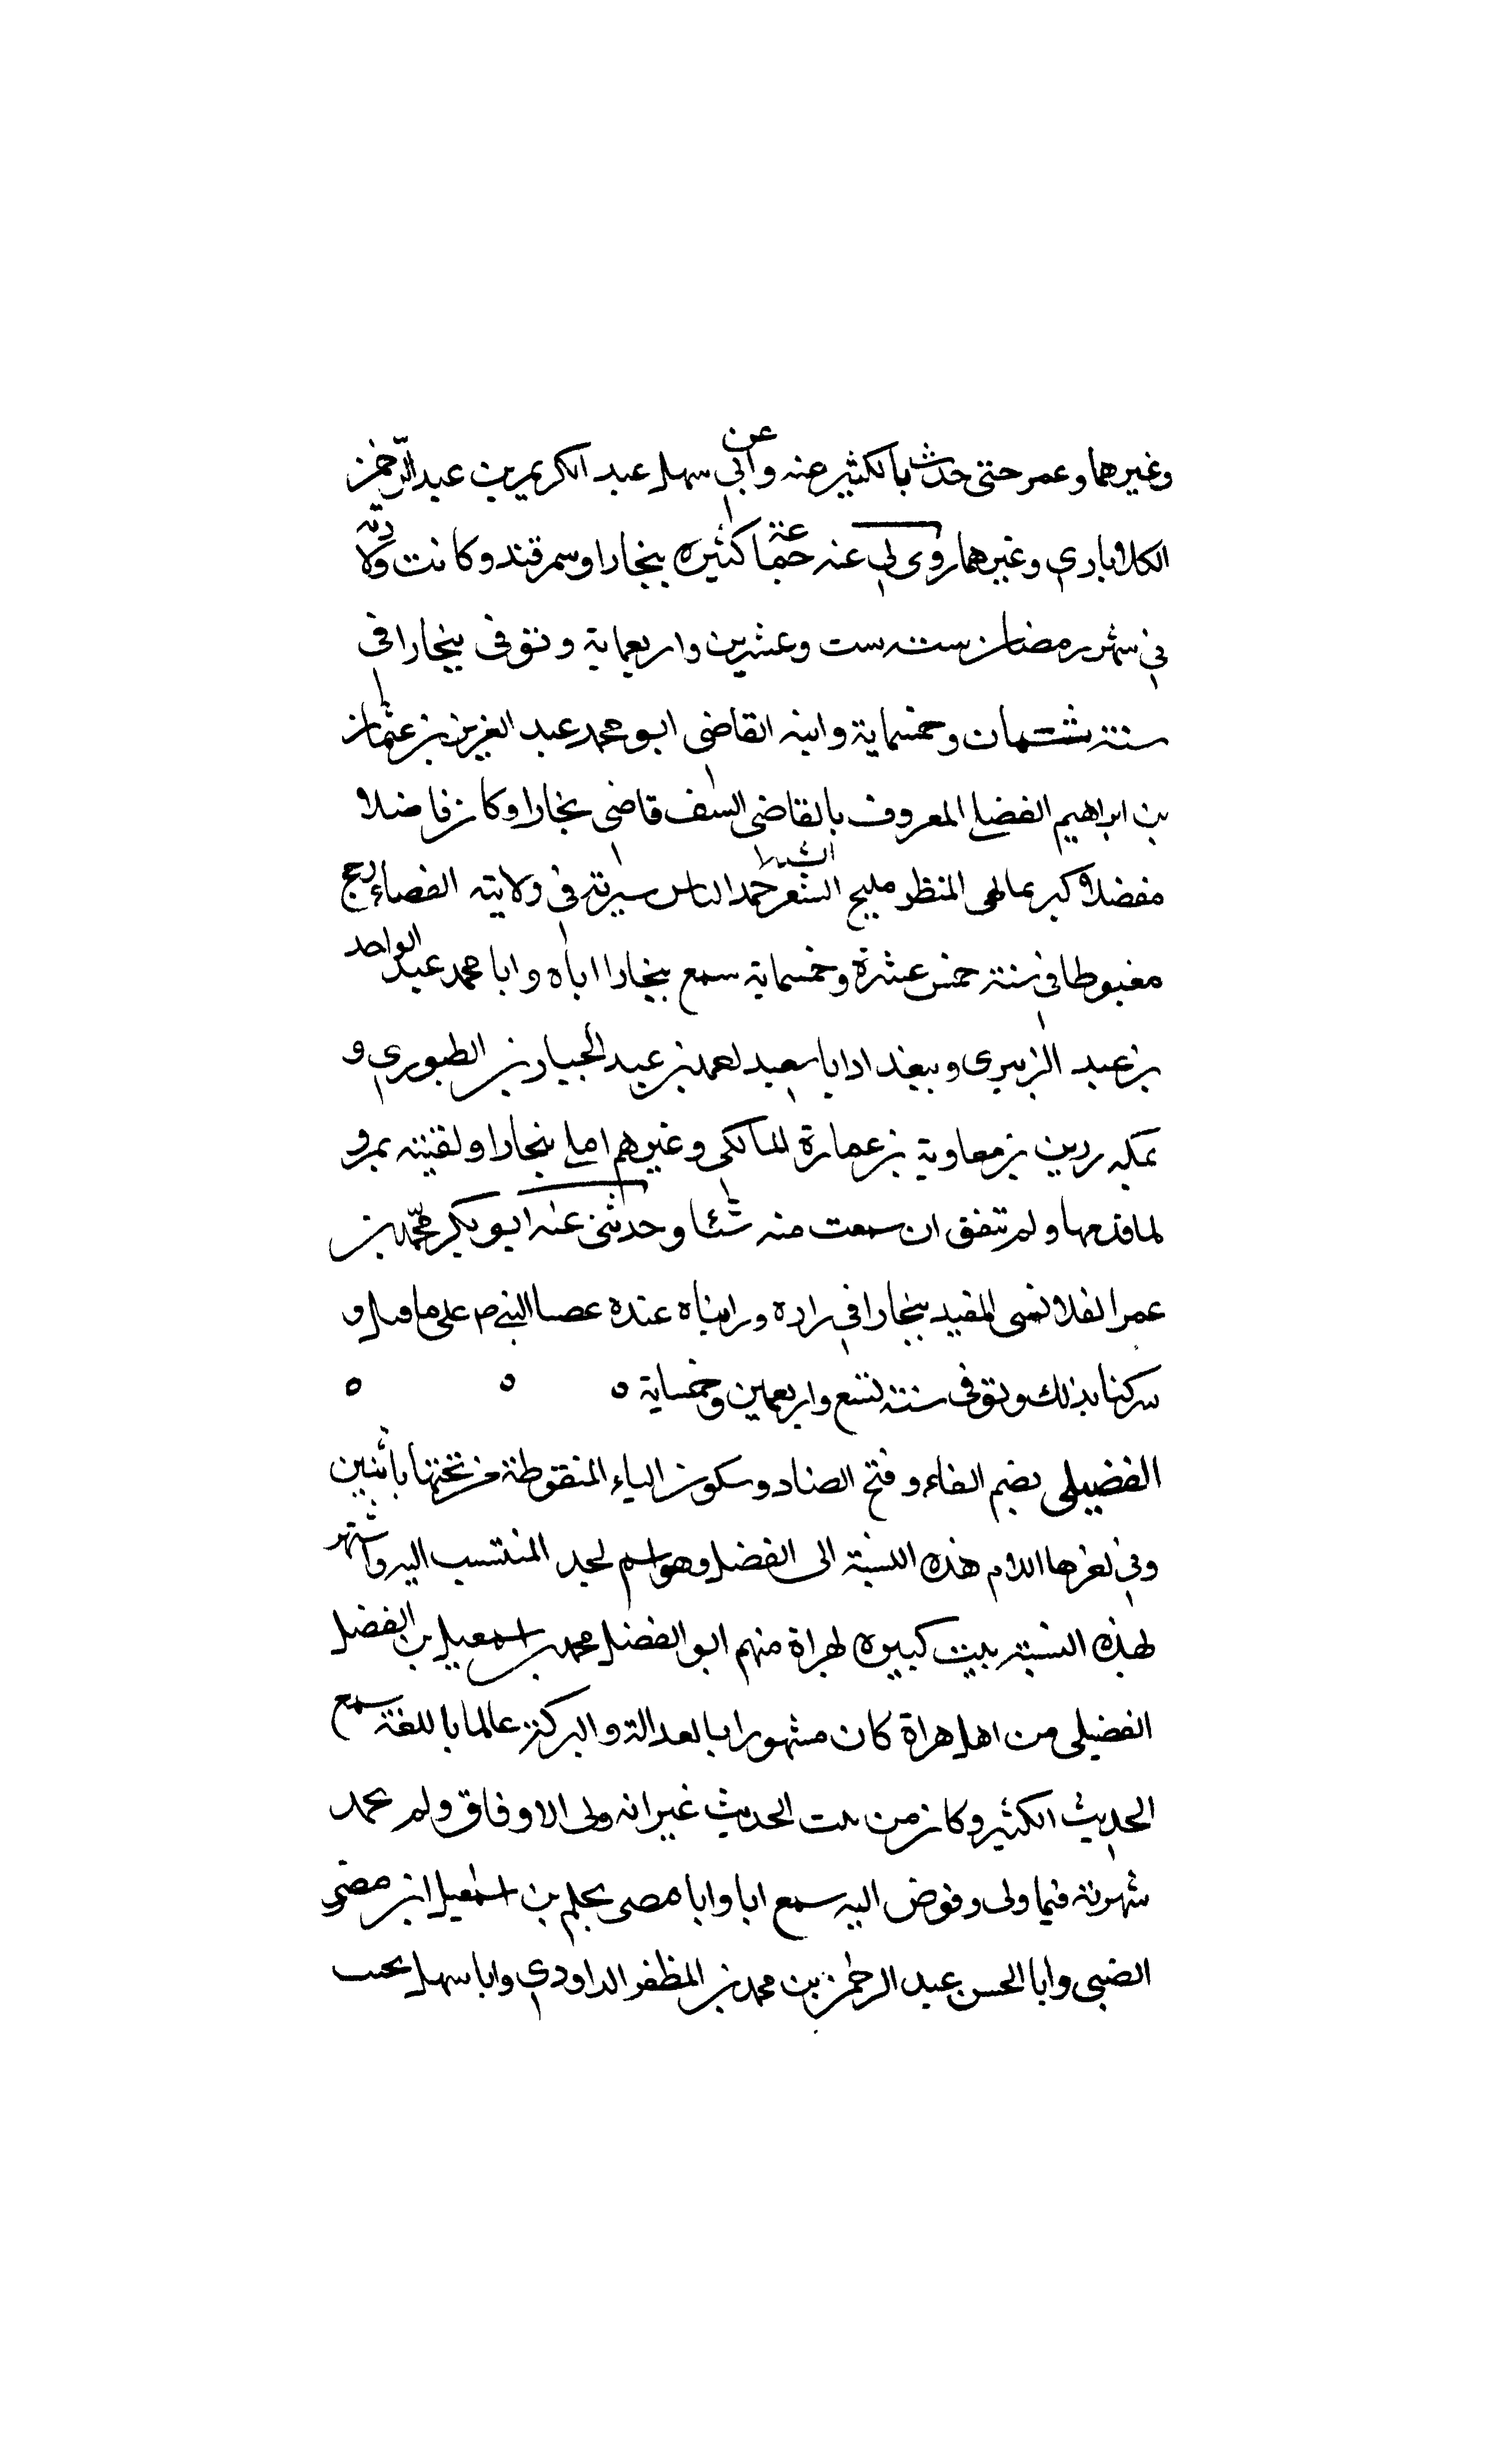 وغيرهما وعمر حتى حدث بالكثير عنه وعن ابي سهل عبد الكريم بن عبد الرحمن
الكلاباذي وغيرهما روى لي عنه جماعة كثيرة ببخارا وسمرقند وكانت ولادته
في شهر رمضان سنة ست وعشرين واربعماية وتوفى ببخارا في
سنة ثمان وخمسماية وابنه القاضي ابو محمد عبد العزيز بن عثمان
بن ابراهيم الفضلي المعروف بالقاضي قاضي بخارا وكان فاضلا
مفضلا المنظر مليح الشيبة حمد الناس سيرته في ولايته القضاء حج
مغبوطا في سنة خمس عشرة وخمسماية سمع ببخارا اباه وابا محمد عبد الواحد
بن عبد الزبيري وببغداد ابا سعيد احمد بن عبد الجبار بن الطيوري و
بمكه رزين بن معاوية بن عمارة المالكي وغيرهم املى ببخارا ولقيته بمرو
لما قدمها ولم يتفق ان سمعت منه شئا وحدثني عنه ابو بكر محمد بن
عمر القلانسي المفيد ببخارا في داره وراينا عنده عصا النبي ص على ما قيل و
بذلك وتوفى سنة تسع واربعين وخمسماية ٥ ٥ ٥
الفضيلي بضم الفاء وفتح الضاد وسكون الياء المنقوطة من تحتها باثنين
وفي اخرها اللام هذه النسبة الى الفضيل وهو اسم لجد المنتسب اليه واشتهر
بهذه النسبة بيت كبيرة بهراة منهم ابو الفضل محمد بن اسمعيل بن الفضل
الفضيلي من اهل هراة كان مشهورا بالعدالة والبركة عالما باللغة سمع
الحديث الكثير وكان من بيت الحديث غير انه ولي الاوقاف ولم يحمد
سيرته فيما ولى وفوض اليه سمع اباه وابا مضر محلم بن اسمعيل بن مضر
الضبي وابا الحسن عبد الرحمن بن محمد بن المظفر الداودي وابا سهل نجيب